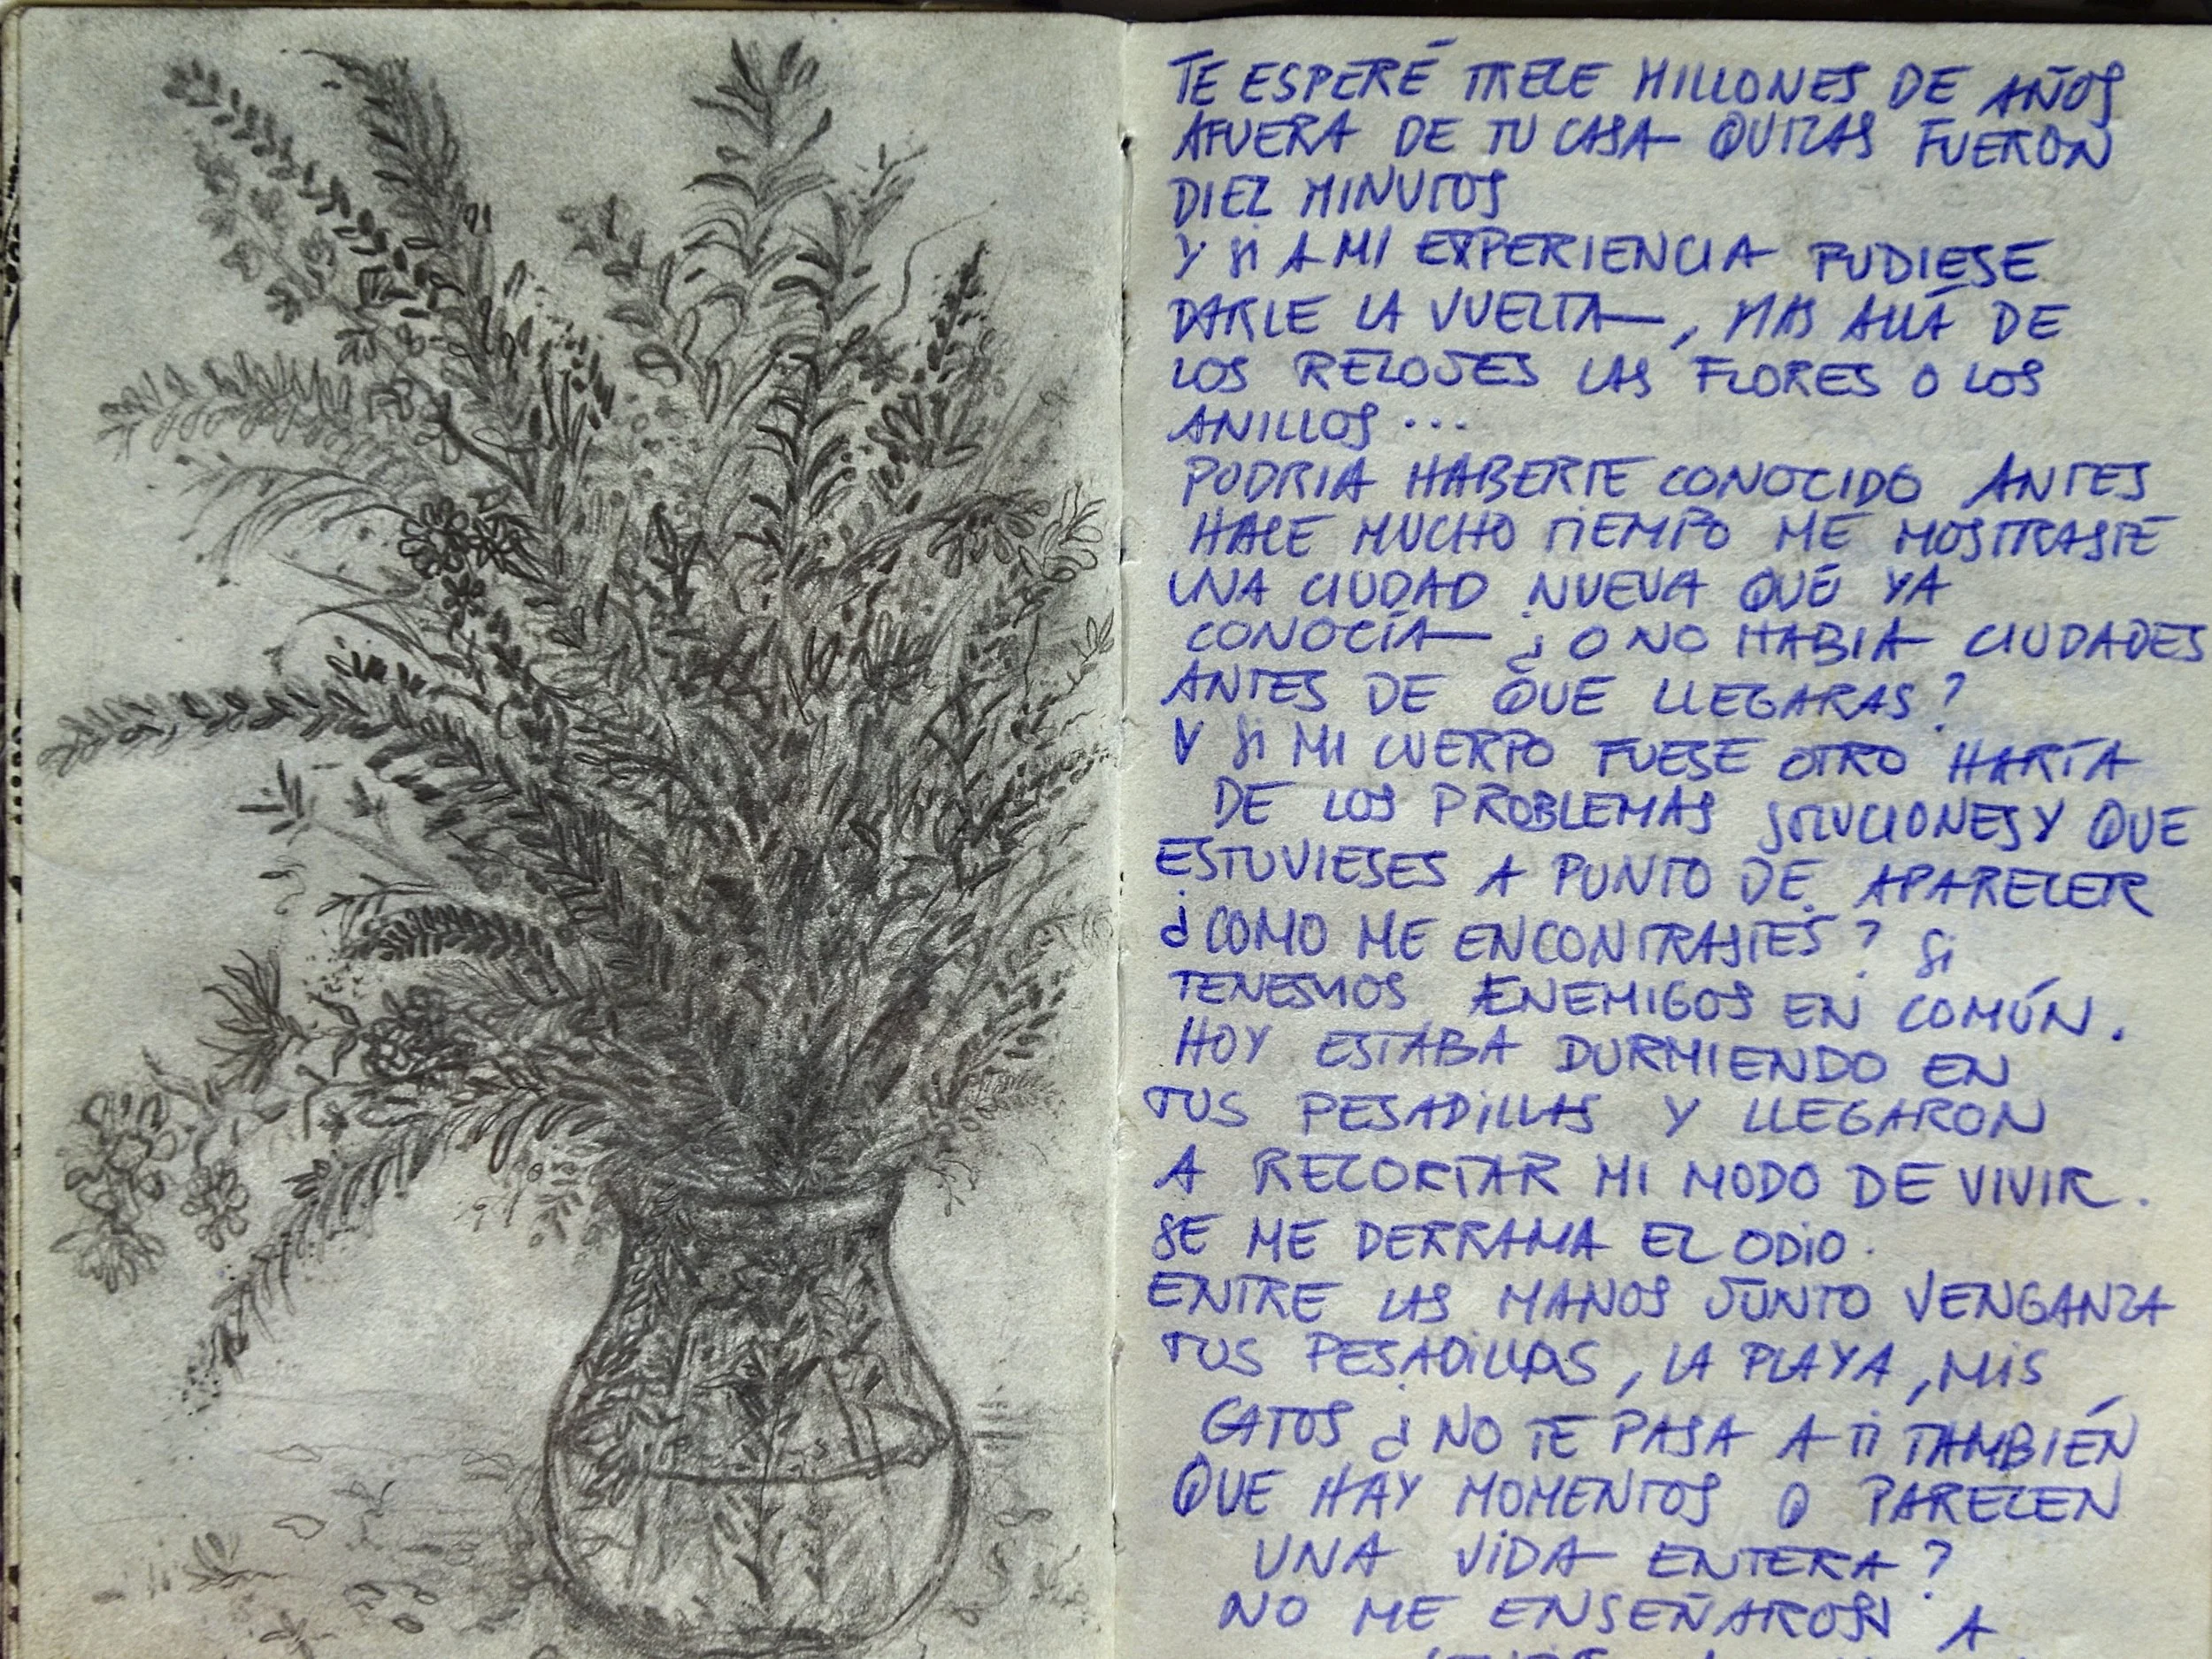 TE ESPERÉ TRECE MILLONES DE AÑOS
AFUERA DE TU CASA QUIZAS FUERON
DIEZ MINUTOS
Y SI A MI EXPERIENCIA PUDIESE
DARLE LA VUELTA, MAS ALLÁ DE
LOS RELOJES LAS FLORES O LOS
ANILLOS...
PODRIA HABERTE CONOCIDO ANTES
HACE MUCHO TIEMPO ME MOSTRASTE
UNA CIUDAD NUEVA QUE YA
CONOCÍA ¿O NO HABIA CIUDADES
ANTES DE QUE LLEGARAS?
Y SI MI CUERPO FUESE OTRO HARÍA
DE LOS PROBLEMAS SOLUCIONES Y QUE
ESTUVIESES A PUNTO DE APARECER
¿COMO ME ENCONTRASTES? SI
TENESMOS ENEMIGOS EN COMÚN.
HOY ESTABA DURMIENDO EN
TUS PESADILLAS Y LLEGARON
A RECORTAR MI MODO DE VIVIR.
SE ME DERRAMA EL ODIO.
ENTRE LAS MANOS JUNTO VENGANZA
TUS PESADILLAS, LA PLAYA, MIS
GATOS ¿NO TE PASA A TI TAMBIÉN
QUE HAY MOMENTOS Q PARECEN
UNA VIDA ENTERA?
NO ME ENSEÑARON A